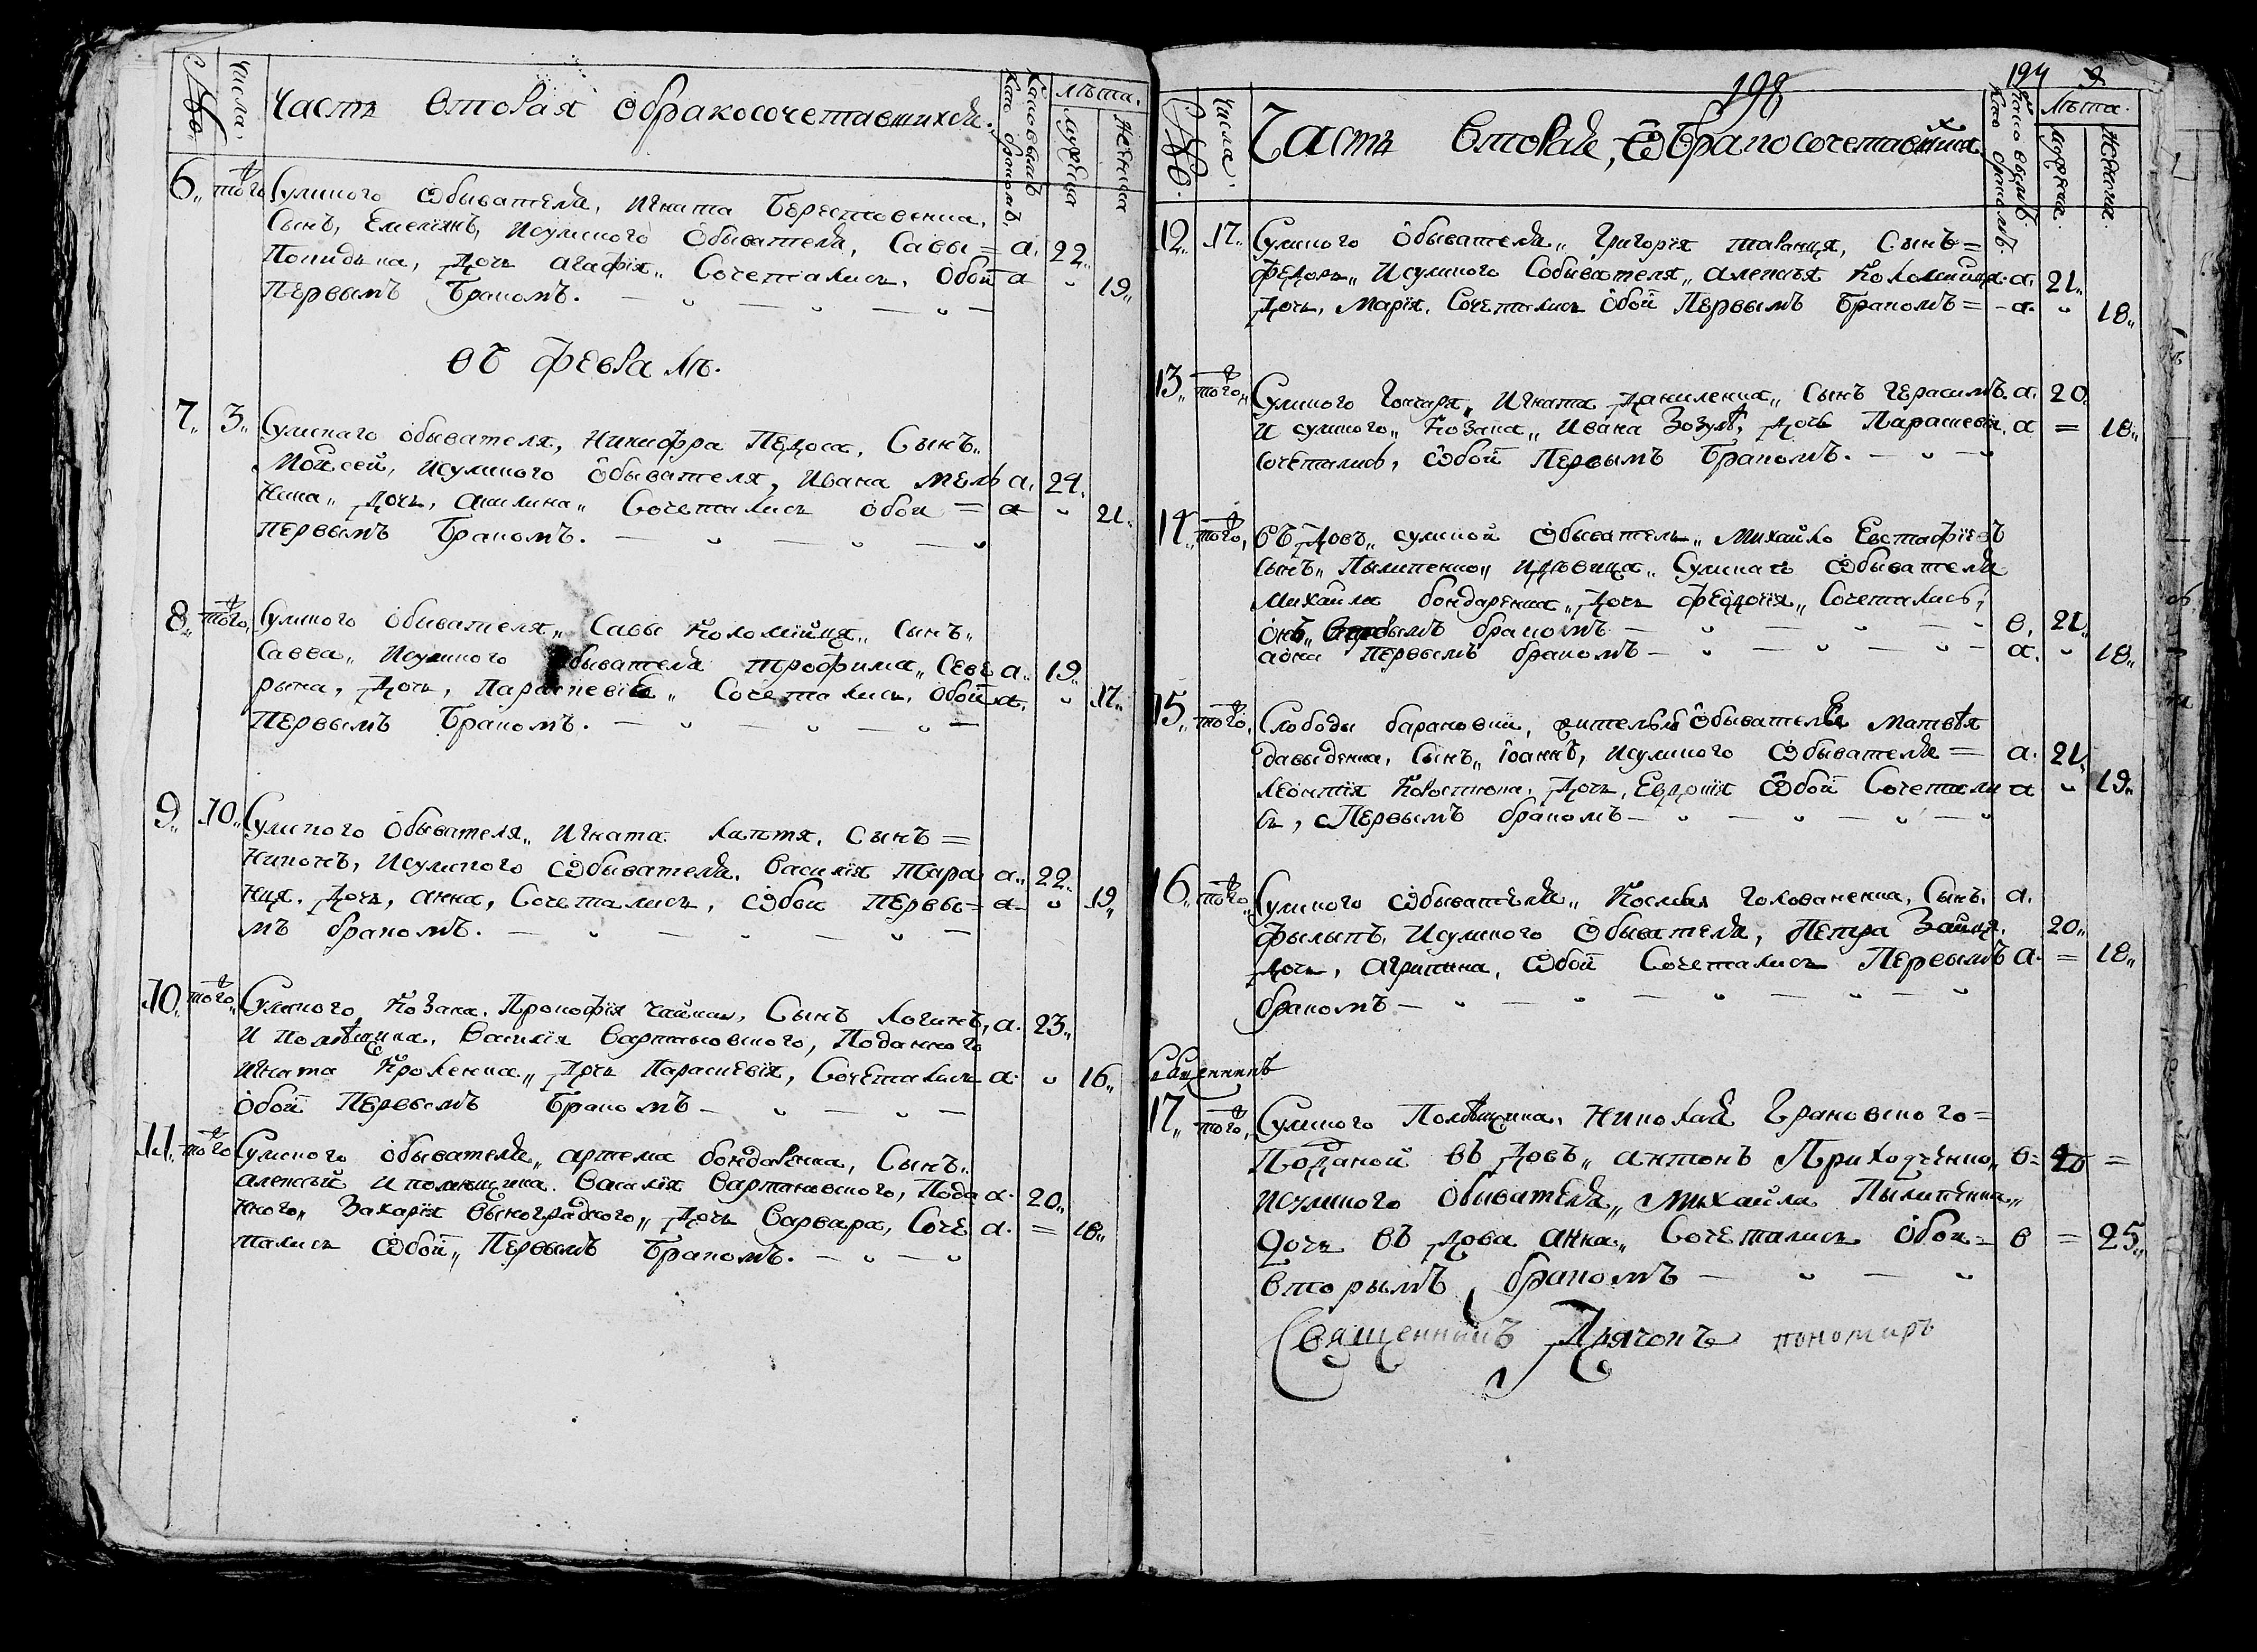 №
числа.
Часть вторая обракосочетавшихся.
Каковымъ
бракомъ.
лѣта.
мужеска
женска
6„ того Сумского обывателя, Игната Берестовенка,
Сынъ, Емелянъ, исумского обывателя, Савы = а. 22„
дочь агафїя„ Сочетались, Обои а „ 19„
Первымъ Бракомъ.
въ февралѣ.
7„ 3„ Сумскаго обывателя, Никифра Педоса, Сынъ„
Моисей, исумского обывателя, Ивана Мелъ а. 24.
ника„ дочь, акилина„ Сочетались обои = а „ 21.
первымъ Бракомъ.
8„ того, Сумского обывателя„ Савы Коломїйця„ Сынъ„
Савва„ Исумского обывателя трофима„ Севе а„ 19„
рына, дочь, Параскевїя„ Сочетались, обои а. „ 17„
Первымъ Бракомъ.
9„ 10„ Сумского обывателя„ Игната лаптя, Сынъ =
Никонъ, Исумского обывателя, василїя тара а„ 22„
ния. дочь, анна, Сочетались, обои первы= а „ 19„
мъ бракомъ.
10„ того„ Сумского Козака, Прокофїя чайки, Сынъ логинъ, а. 23„
И помѣщика, Василїя Вартаковского, Поданного
Игната Кроленка„ дочь Параскевїя, Сочетались а. „ 16„
обои Первымъ Бракомъ
11„ того Сумского обывателя„ артема бондаренка, Сынъ„
алексѣй ипомѣщика. василїя Вартановского, Пода а. 20„
нного„ Захарїя Выноградного„ дочь Варвара, Соче а. = 18„
тались обои„ Первымъ Бракомъ.
198
194
№
числа.
Часть вторая, обракосочетавшихся
Каковымъ
бракомъ.
Лѣта.
Мужеска.
женска.
12„ 17„ Сумского обывателя„ Григорїя таранця, Сынъ=
федоръ„ Исумского обывателя„ алексѣя Коломийця. а. 21„
дочь, Марїя. Сочетались обои Первымъ Бракомъ= - а. „ 18„
13„ того„ Сумского Гончаря, Игната Даниленка„ Сынъ герасимъ. а. 20
И сумского„ Козака„ ивана Зозулѣ, дочь Параскевїя, а = 18„
сочетались, обои Первымъ Бракомъ.
14„ того, въдовъ„ сумской обыватель„ михайло Евстафїевъ
Сынъ„ Пылипенко„ идѣвица„ Сумскагъ обывателя
Михайла бондаренка„ дочь феодосїя„ Сочетались,
онъ, бракомъ в. 21„
аона первымъ бракомъ а. „ 18„
15„ того, Слободы барановки, жителя обывателя матвѣя
давыденка, Сынъ„ їоаннъ, исумского обывателя = а. 21„
леонтїя Коростюка, дочь, Евдокїя обои Сочетали а „ 19„
сь, Первымъ бракомъ
16„ того„ Сумского обывателя„ Космы голованенка, Сынъ. а.
фылыпъ. Исумского обывателя, Петра Зайця. 20„
дочь, агрипина, обои Сочетались Первымъ а. = 18„
бракомъ
Священникъ
17„ того, Сумского Помѣщика, Николая Грановского=
Поданой въ довъ„ антонъ Приходченко„ в= =
исумского обывателя„ михайла Пылипенка„
дочь въ дова анна„ Сочетались обои= в = 25„
вторымъ бракомъ
Священникъ Дьячокъ пономарь